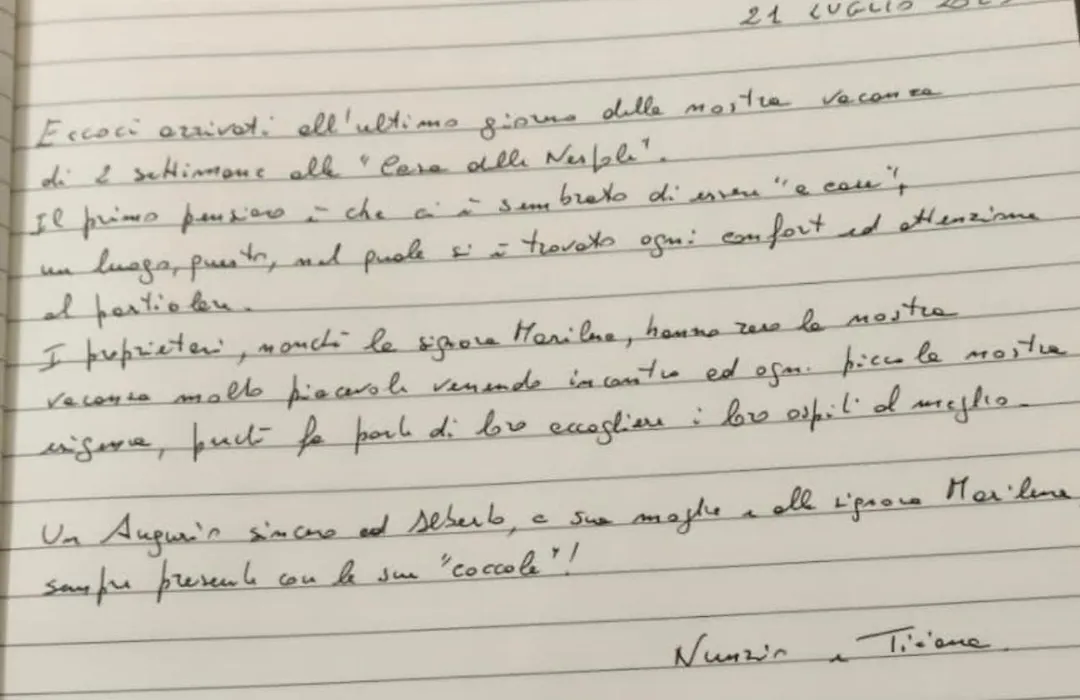 21 LUGLIO
Eccoci arrivati all'ultimo giorno della nostra vacanza
di 2 settimane alla "Casa delle Nespole".
Il primo pensiero è che ci è sembrato di essere "a casa",
un luogo, questo, nel quale si è trovato ogni comfort ed attenzione
al particolare.
I proprietari, nonché la signora Marilena, hanno reso la nostra
vacanza molto piacevole venendo incontro ad ogni piccola nostra
esigenza, perché fa parte di loro accogliere i loro ospiti al meglio.
Un Augurio sincero ad Alberto, a sua moglie e alla signora Marilena
sempre presente con le sue "coccole"!
Nunzio e Tiziana